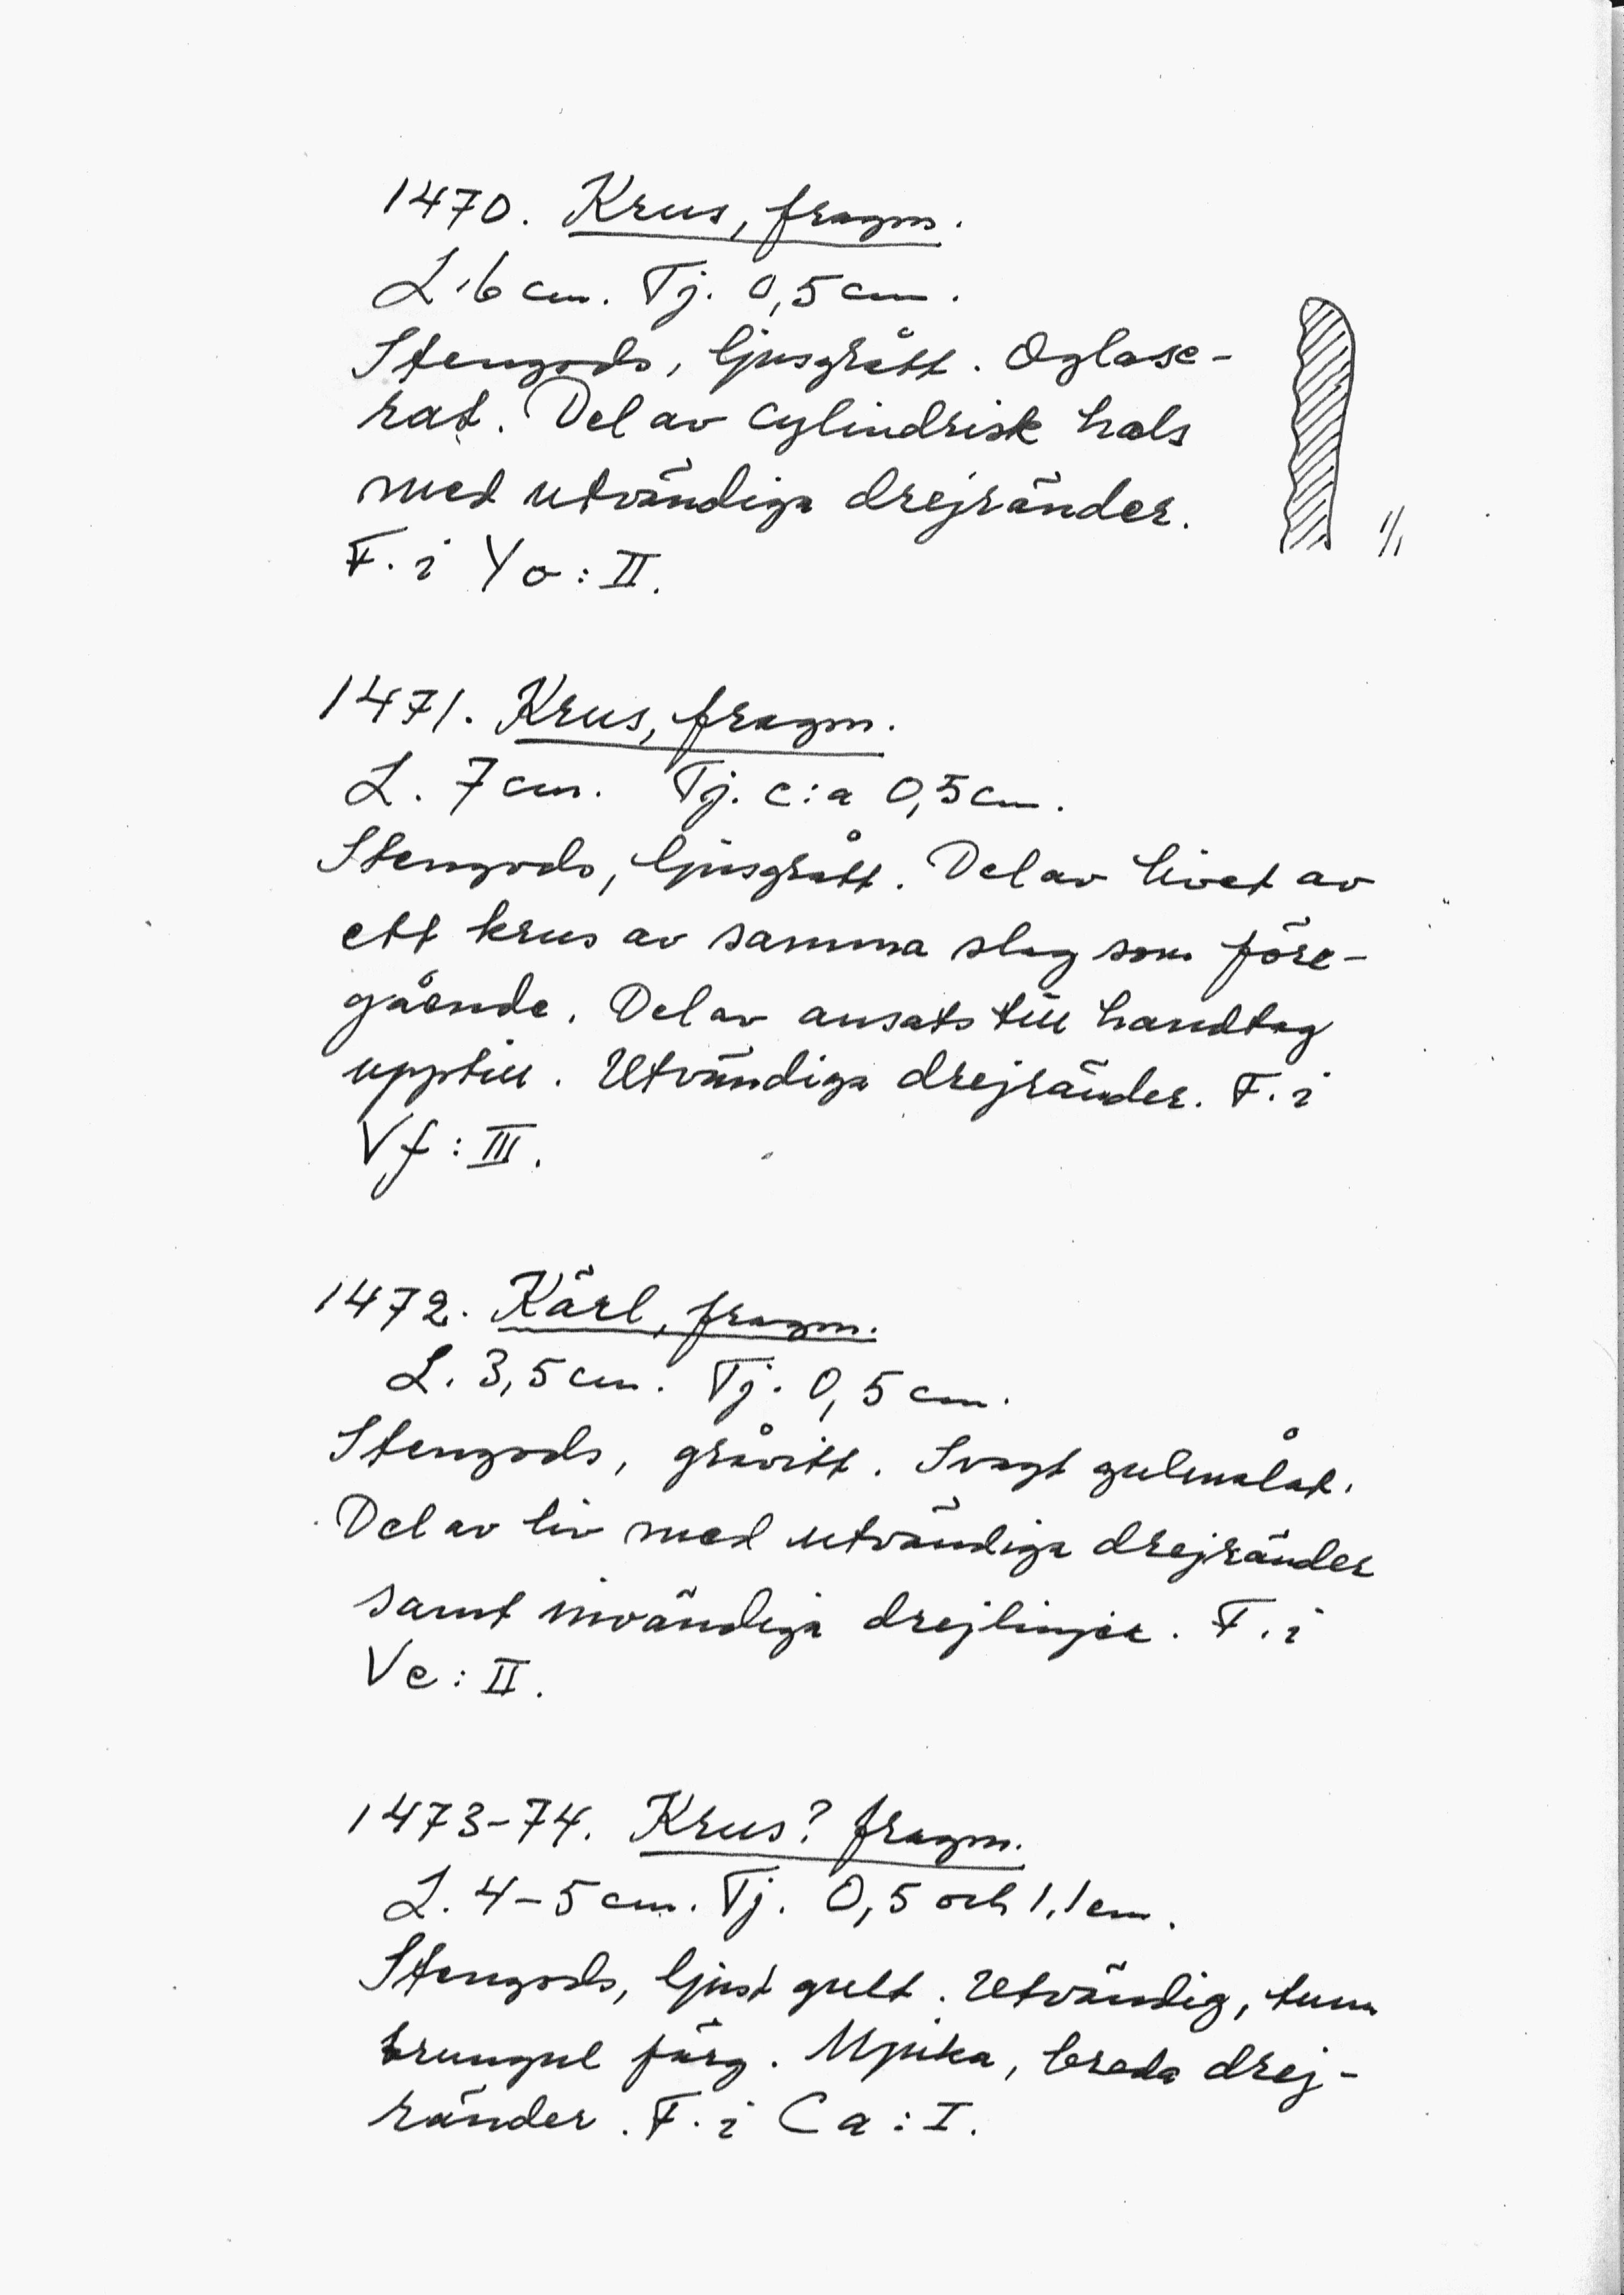 1470. Krus, fragm.
L. 6 cm. Tj. 0,5 cm.
Stengods, ljusgrått. Oglase-
rat. Del av cylindrisk hals
med utvändiga drejränder.
F. i Yo : II.
1/1
1471. Krus, fragm.
L. 7 cm. Tj. c:a 0,5 cm.
Stengods, ljusgrått. Del av livet av
ett krus av samma slag som före-
gående. Del av ansats till handtag
upptill. Utvändiga drejränder. F. i
Vf : III.
1472. Kärl, fragm.
L. 3,5 cm. Tj. 0,5 cm.
Stengods, gråvitt. Svagt gulmålat.
Del av liv med utvändiga drejränder
samt invändiga drejlinjer. F. i
Ve : II.
1473-74. Krus? fragm.
L. 4-5 cm. Tj. 0,5 och 1,1 cm.
Stengods, ljust gult. Utvändig, tunn
brungul färg. Mjuka, breda drej-
ränder. F. i Ca : I.